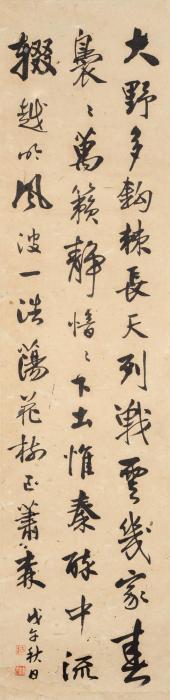 大野多鈎棘長天列戰雲幾家春
裊〻萬籟靜愔〻下土惟秦醉中流
輟越吟風波一浩蕩花樹已蕭森
戊午秋日